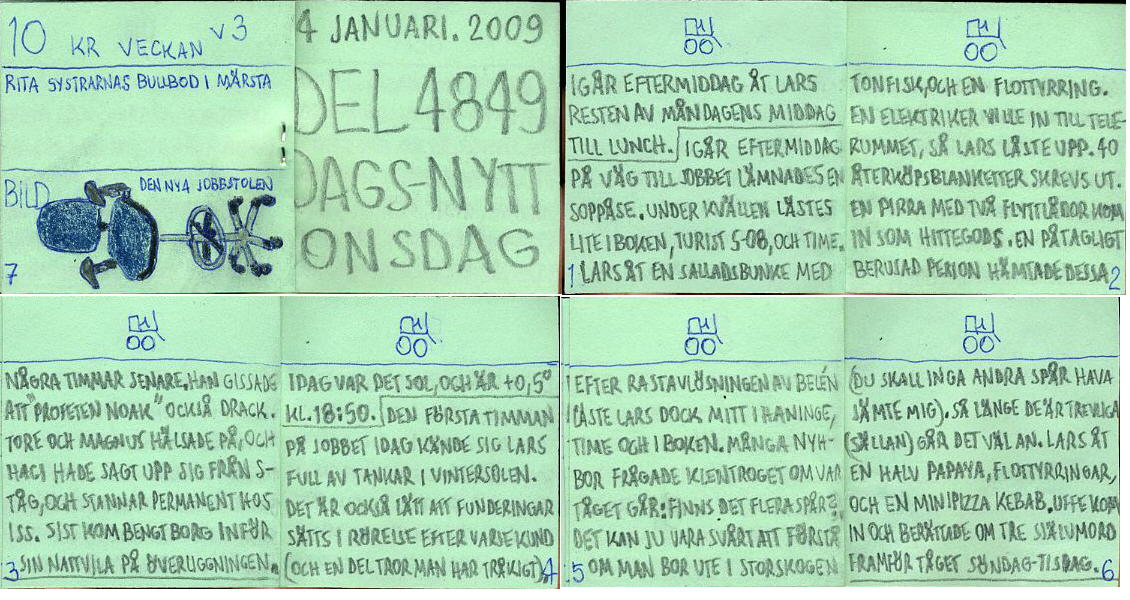 10 KR VECKAN V3
RITA SYSTRARNAS BULLBOD I MÄRSTA
BILD
DEN NYA JOBBSTOLEN
7
4 JANUARI. 2009
DEL 4849
DAGS-NYTT
ONSDAG
IGÅR EFTERMIDDAG ÅT LARS
RESTEN AV MÅNDAGENS MIDDAG
TILL LUNCH. IGÅR EFTERMIDDAG
PÅ VÄG TILL JOBBET LÄMNADES EN
SOPPÅSE. UNDER KVÄLLEN LÄSTES
LITE I BOKEN, TURIST 5-08, OCH TIME.
1 LARS ÅT EN SALLADSBUNKE MED
TONFISK, OCH EN FLOTTYRRING.
EN ELEKTRIKER VILLE IN TILL TELE-
RUMMET, SÅ LARS LÅSTE UPP. 40
ÅTERKÖPSBLANKETTER SKREVS UT.
EN PIRRA MED TVÅ FLYTTLÅDOR KOM
IN SOM HITTEGODS. EN PÅTAGLIGT
BERUSAD PERSON HÄMTADE DESSA 2
NÅGRA TIMMAR SENARE. HAN GISSADE
ATT "PROFETEN NOAK" OCKSÅ DRACK.
TORE OCH MAGNUS HÄLSADE PÅ, OCH
HACI HADE SAGT UPP SIG FRÅN S-
TÅG, OCH STANNAR PERMANENT HOS
ISS. SIST KOM BENGT BORG INFÖR
3 SIN NATTVILA PÅ ÖVERLIGGNINGEN.
IDAG VAR DET SOL, OCH ÄR +0,5°
KL. 18:50. DEN FÖRSTA TIMMAN
PÅ JOBBET IDAG KÄNDE SIG LARS
FULL AV TANKAR I VINTERSOLEN.
DET ÄR OCKSÅ LÄTT ATT FUNDERINGAR
SÄTTS I RÖRELSE EFTER VARJE KUND
(OCH EN DEL TROR MAN HAR TRÅKIGT). 4
EFTER RASTAVLÖSNINGEN AV BELÉN
LÄSTE LARS DOCK MITT I HANINGE,
TIME OCH I BOKEN. MÅNGA NYH-
BOR FRÅGADE KLENTROGET OM VAR
TÅGET GÅR: FINNS DET FLERA SPÅR?
DET KAN JU VARA SVÅRT ATT FÖRSTÅ
5 OM MAN BOR UTE I STORSKOGEN
(DU SKALL INGA ANDRA SPÅR HAVA
JÄMTE MIG). SÅ LÄNGE DE ÄR TREVLIGA
(SÄLLAN) GÅR DET VÄL AN. LARS ÅT
EN HALV PAPAYA, FLOTTYRRINGAR,
OCH EN MINIPIZZA KEBAB. UFFE KOM
IN OCH BERÄTTADE OM TRE SJÄLVMORD
FRAMFÖR TÅGET SÖNDAG-TISDAG. 6